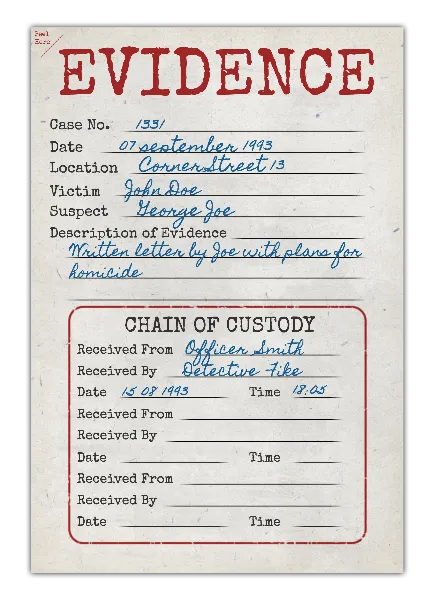 Peel
Here
EVIDENCE
Case No. 1331
Date 07 september 1993
Location Corner Street 13
Victim John Doe
Suspect George Joe
Description of Evidence
Written letter by Joe with plans for
homicide
CHAIN OF CUSTODY
Received From Officer Smith
Received By Detective Fike
Date 15 08 1993 Time 18:05
Received From
Received By
Date Time
Received From
Received By
Date Time